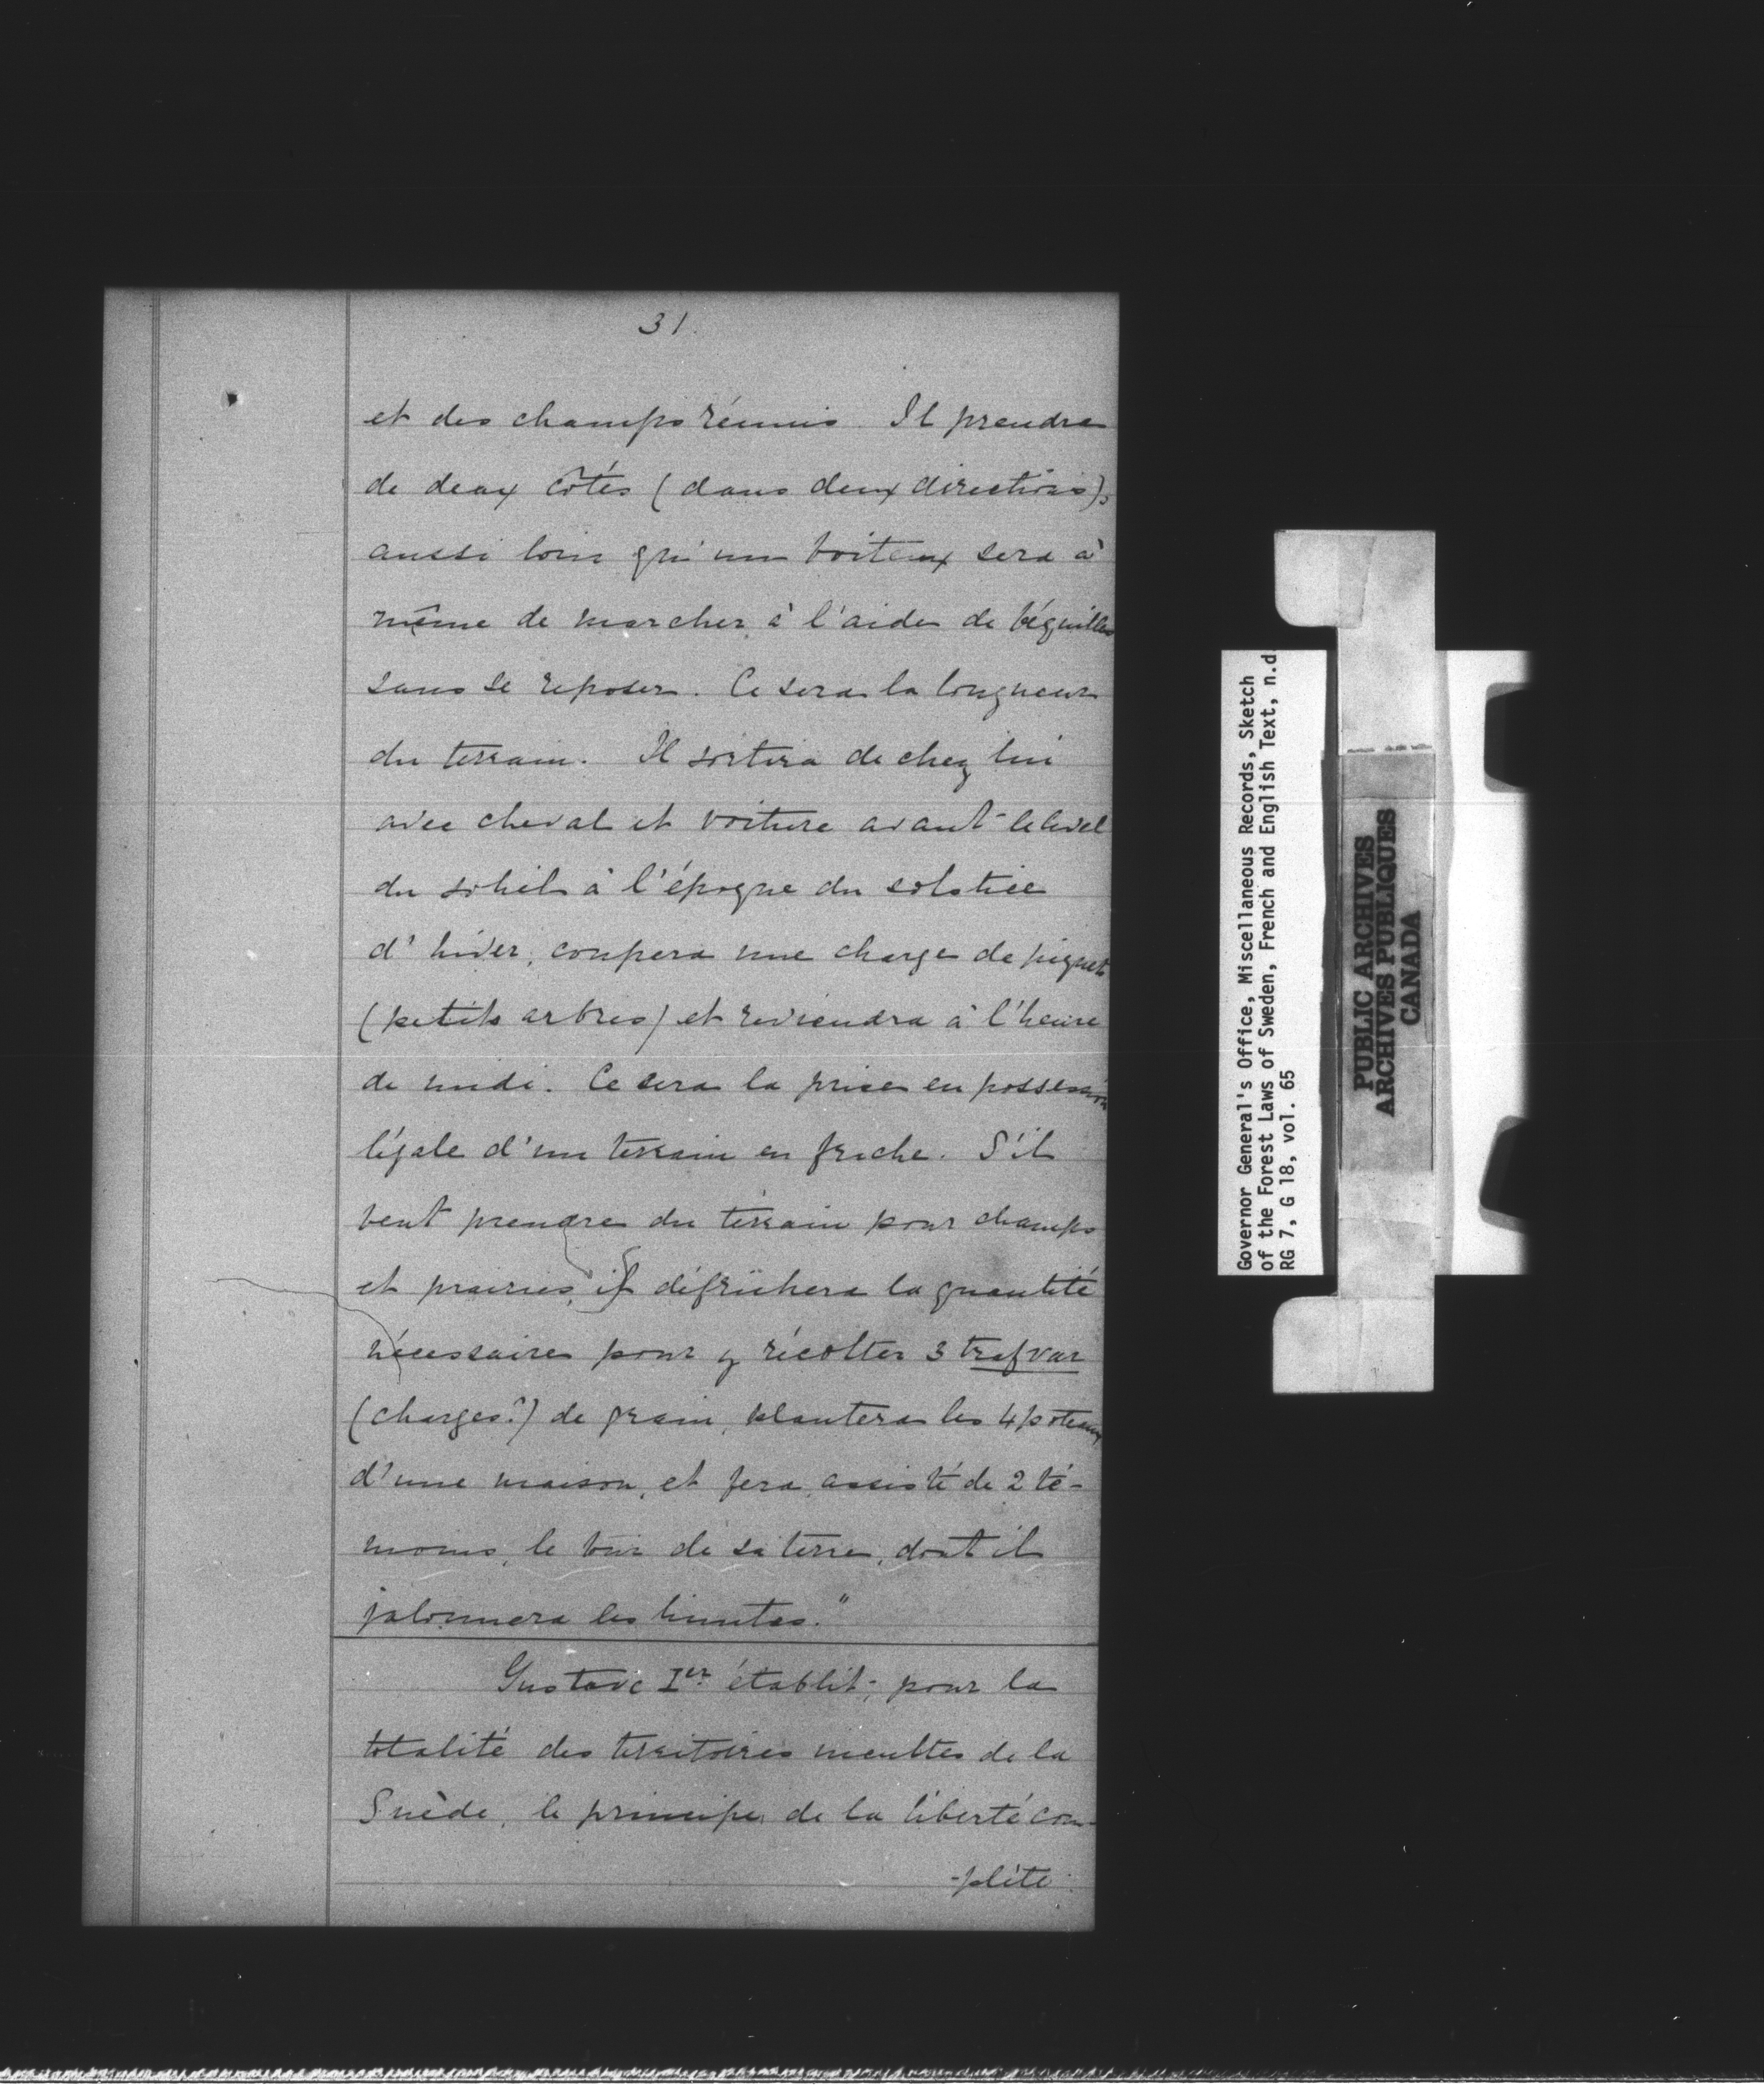 31.
et des champs réunis. Il prendra
de deux côtés (dans deux directions),
aussi loin qu'un boiteux sera à
même de marcher à l'aide de béquilles
sans se reposer. Ce sera la longueur
du terrain. Il sortira de chez lui
avec cheval et voiture avant le lever
du soleil à l'époque du solstice
d'hiver, coupera une charge de piquets
(petits arbres) et reviendra à l'heure
de midi. Ce sera la prise en possession
légale d'un terrain en friche. S'il
veut prendre du terrain pour champs
et prairies, il défrichera la quantité
nécessaire pour y récolter 3 trafvar
(charges?) de grain, plantera les 4 poteaux
d'une maison, et fera, assisté de 2 té-
moins, le tour de sa terre, dont il
jalonnera les limites."
Gustave Ier établit, pour la
totalité des territoires incultes de la
Suède, le principe de la liberté com-
-plète
Governor General's Office, Miscellaneous Records, Sketch
of the Forest Laws of Sweden, French and English Text, n.d
RG 7, G 18, vol. 65
PUBLIC ARCHIVES
ARCHIVES PUBLIQUES
CANADA